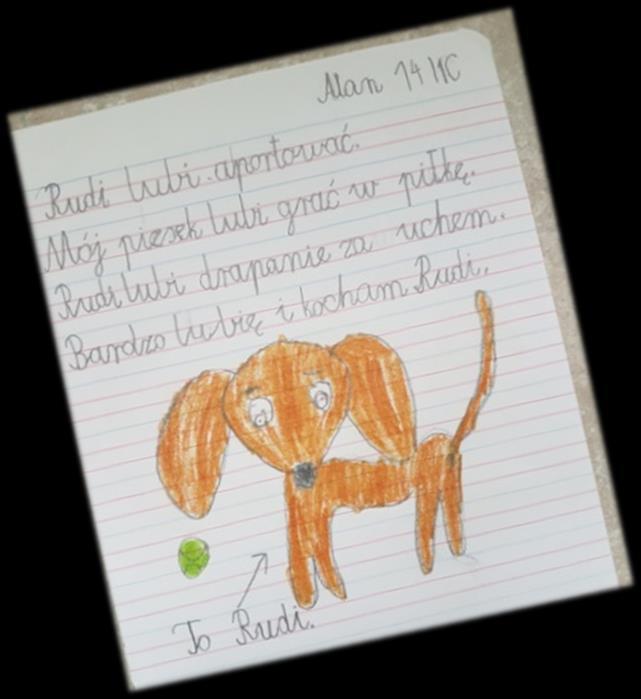 Alan 14 11C
Rudi lubi aportować.
Mój piesek lubi grać w piłkę.
Rudi lubi drapanie za uchem.
Bardzo lubię i kocham Rudi.
To Rudi.